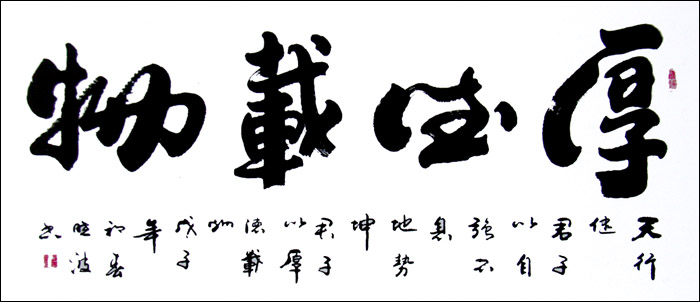 厚德載物
天行
健
君子
以自
強不
息
地势
坤
君子
以厚
德載
物
戊子
年
初春
波
书